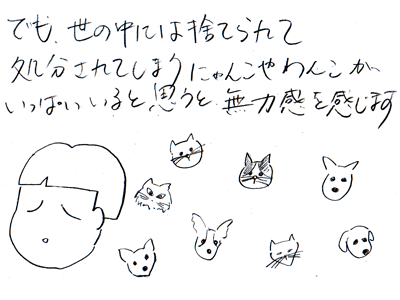 でも、世の中には捨てられて
処分されてしまうにゃんこやわんこが、
いっぱいいると思うと無力感を感じます